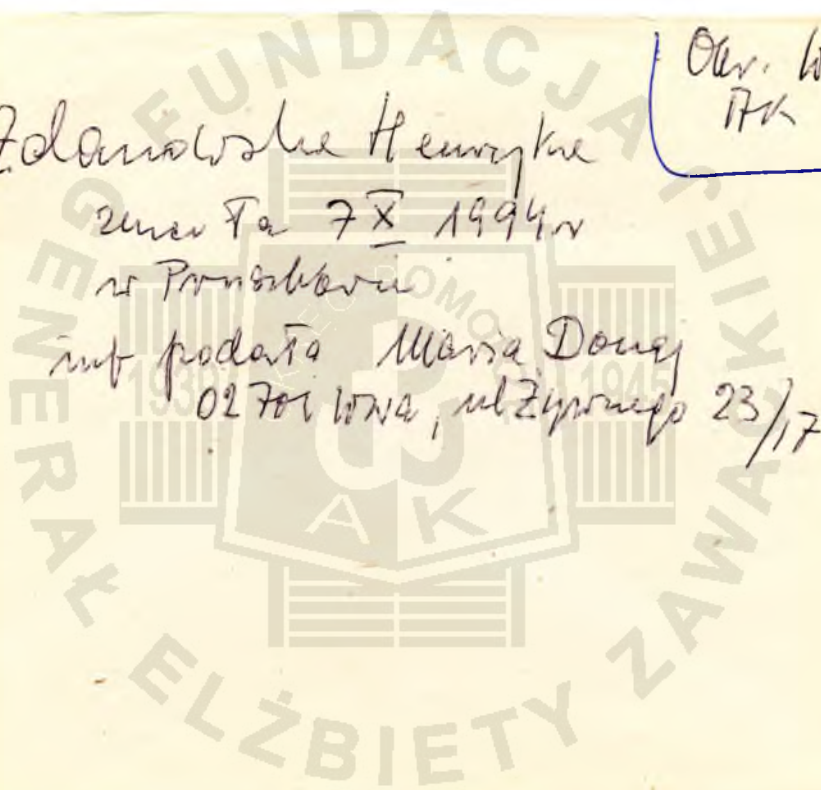 Okr. W
AK
Zdanowska Henryka
zmarła 7 X 1994 r
w Pruszkowie
inf podała Maria Donaj
02 701 W-wa, ul Żywnego 23/17
FUNDACJA
GENERAŁ ELŻBIETY ZAWACKIEJ
1939 1945
AK